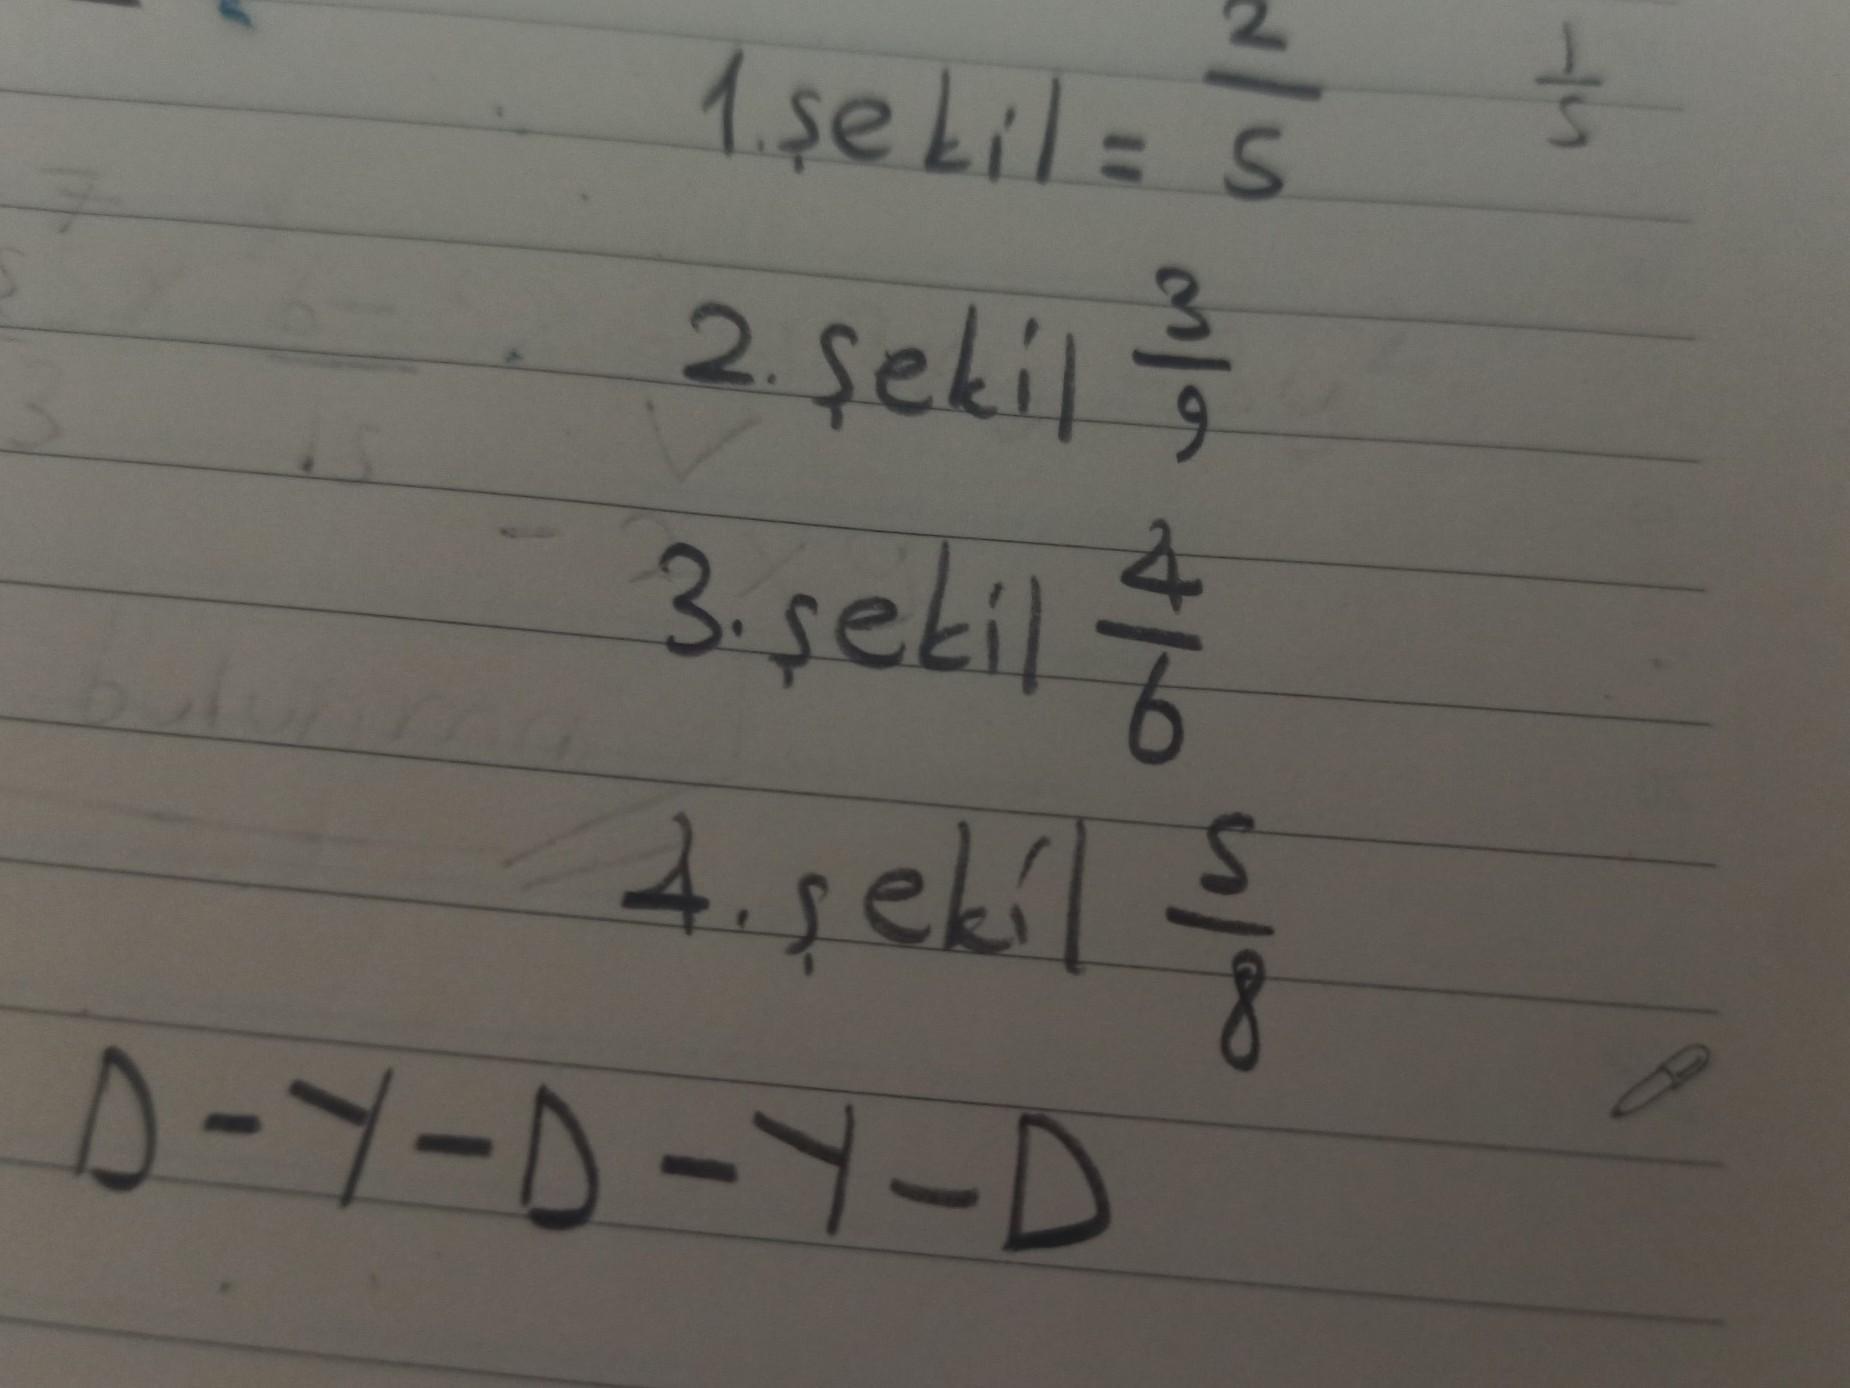 1. şekil = 2/5 1/5
2. şekil 3/9
3. şekil 4/6
4. şekil 5/8
D - Y - D - Y - D